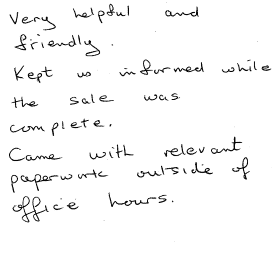 Very helpful and
friendly.
Kept us informed while
the sale was
complete.
Came with relevant
paperwork outside of
office hours.